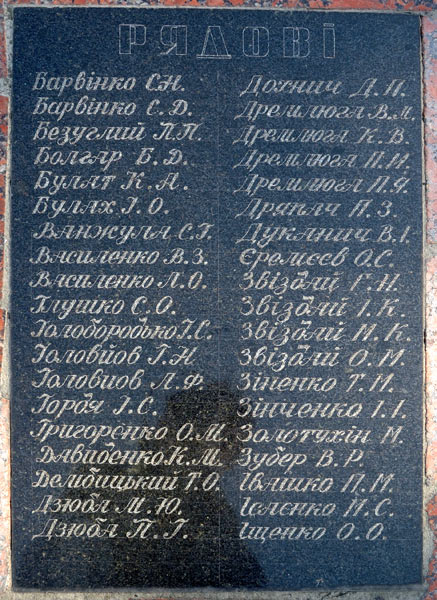 РЯДОВІ
Барвінко С.Н.
Барвінко Є.Д.
Безуглий П.П.
Болгар Б.Д.
Булат К.А.
Булах І.О.
Ванжула С.Г.
Василенко В.З.
Василенко Л.О.
Глушко С.О.
Голобородько І.С.
Головцов Г.Н.
Головцов Л.Ф.
Гордя І.С.
Григоренко О.М.
Давиденко К.М.
Дембицький Т.О.
Дзюба М.Ю.
Дзюба П.Г.
Дохнич Д.П.
Дремлюга В.М.
Дремлюга К.В.
Дремлюга П.Н.
Дремлюга П.Я.
Дряпач П.З.
Дуканич В.І.
Єремєєв О.С.
Звіздай Г.Н.
Звіздай І.К.
Звіздай М.К.
Звіздай О.М.
Зіненко Т.М.
Зінченко І.І.
Золотухін М.
Зубер В.Р.
Івашко П.М.
Ієлєнко М.С.
Іщенко О.О.